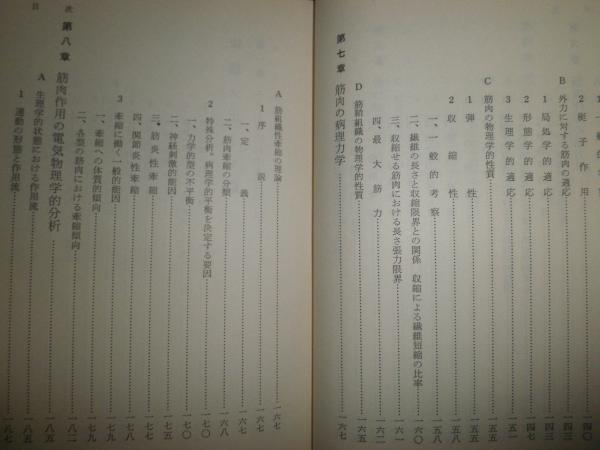 2 梃子作用……一四〇
B 外力に対する筋肉の適応……一四三
1 局処学的適応……一四三
2 形態学的適応……一四五
3 生理学的適応……一四七
C 筋肉の物理学的性質……一五五
1 弾性……一五五
2 収縮性……一五八
一、一般的考察……一五八
二、繊維の長さと収縮限界との関係 収縮による繊維短縮の比率……一六〇
三、収縮せる筋肉における長さ張力限界……一六一
四、最大筋力……一六二
D 筋結組織の物理学的性質……一六五
第七章 筋肉の病理力学……一六七
A 筋組織性牽縮の理論……一六七
1 序説……一六七
一、定義……一六七
二、筋肉牽縮の分類……一六八
2 特殊分析。病理学的平衡を決定する要因……一七〇
一、力学的型の不平衡……一七〇
二、神経刺戟的能因……一七五
三、筋炎性牽縮……一七五
四、関節炎性牽縮……一七六
3 牽縮に働く一般的能因……一七九
一、牽縮への体質的傾向……一七九
二、各型の筋肉における牽縮傾向……一八二
第八章 筋肉作用の電気物理学的分析……一八五
A 生理学的状態における作用流……一八五
1 運動の形態と作用流……一八七
目次